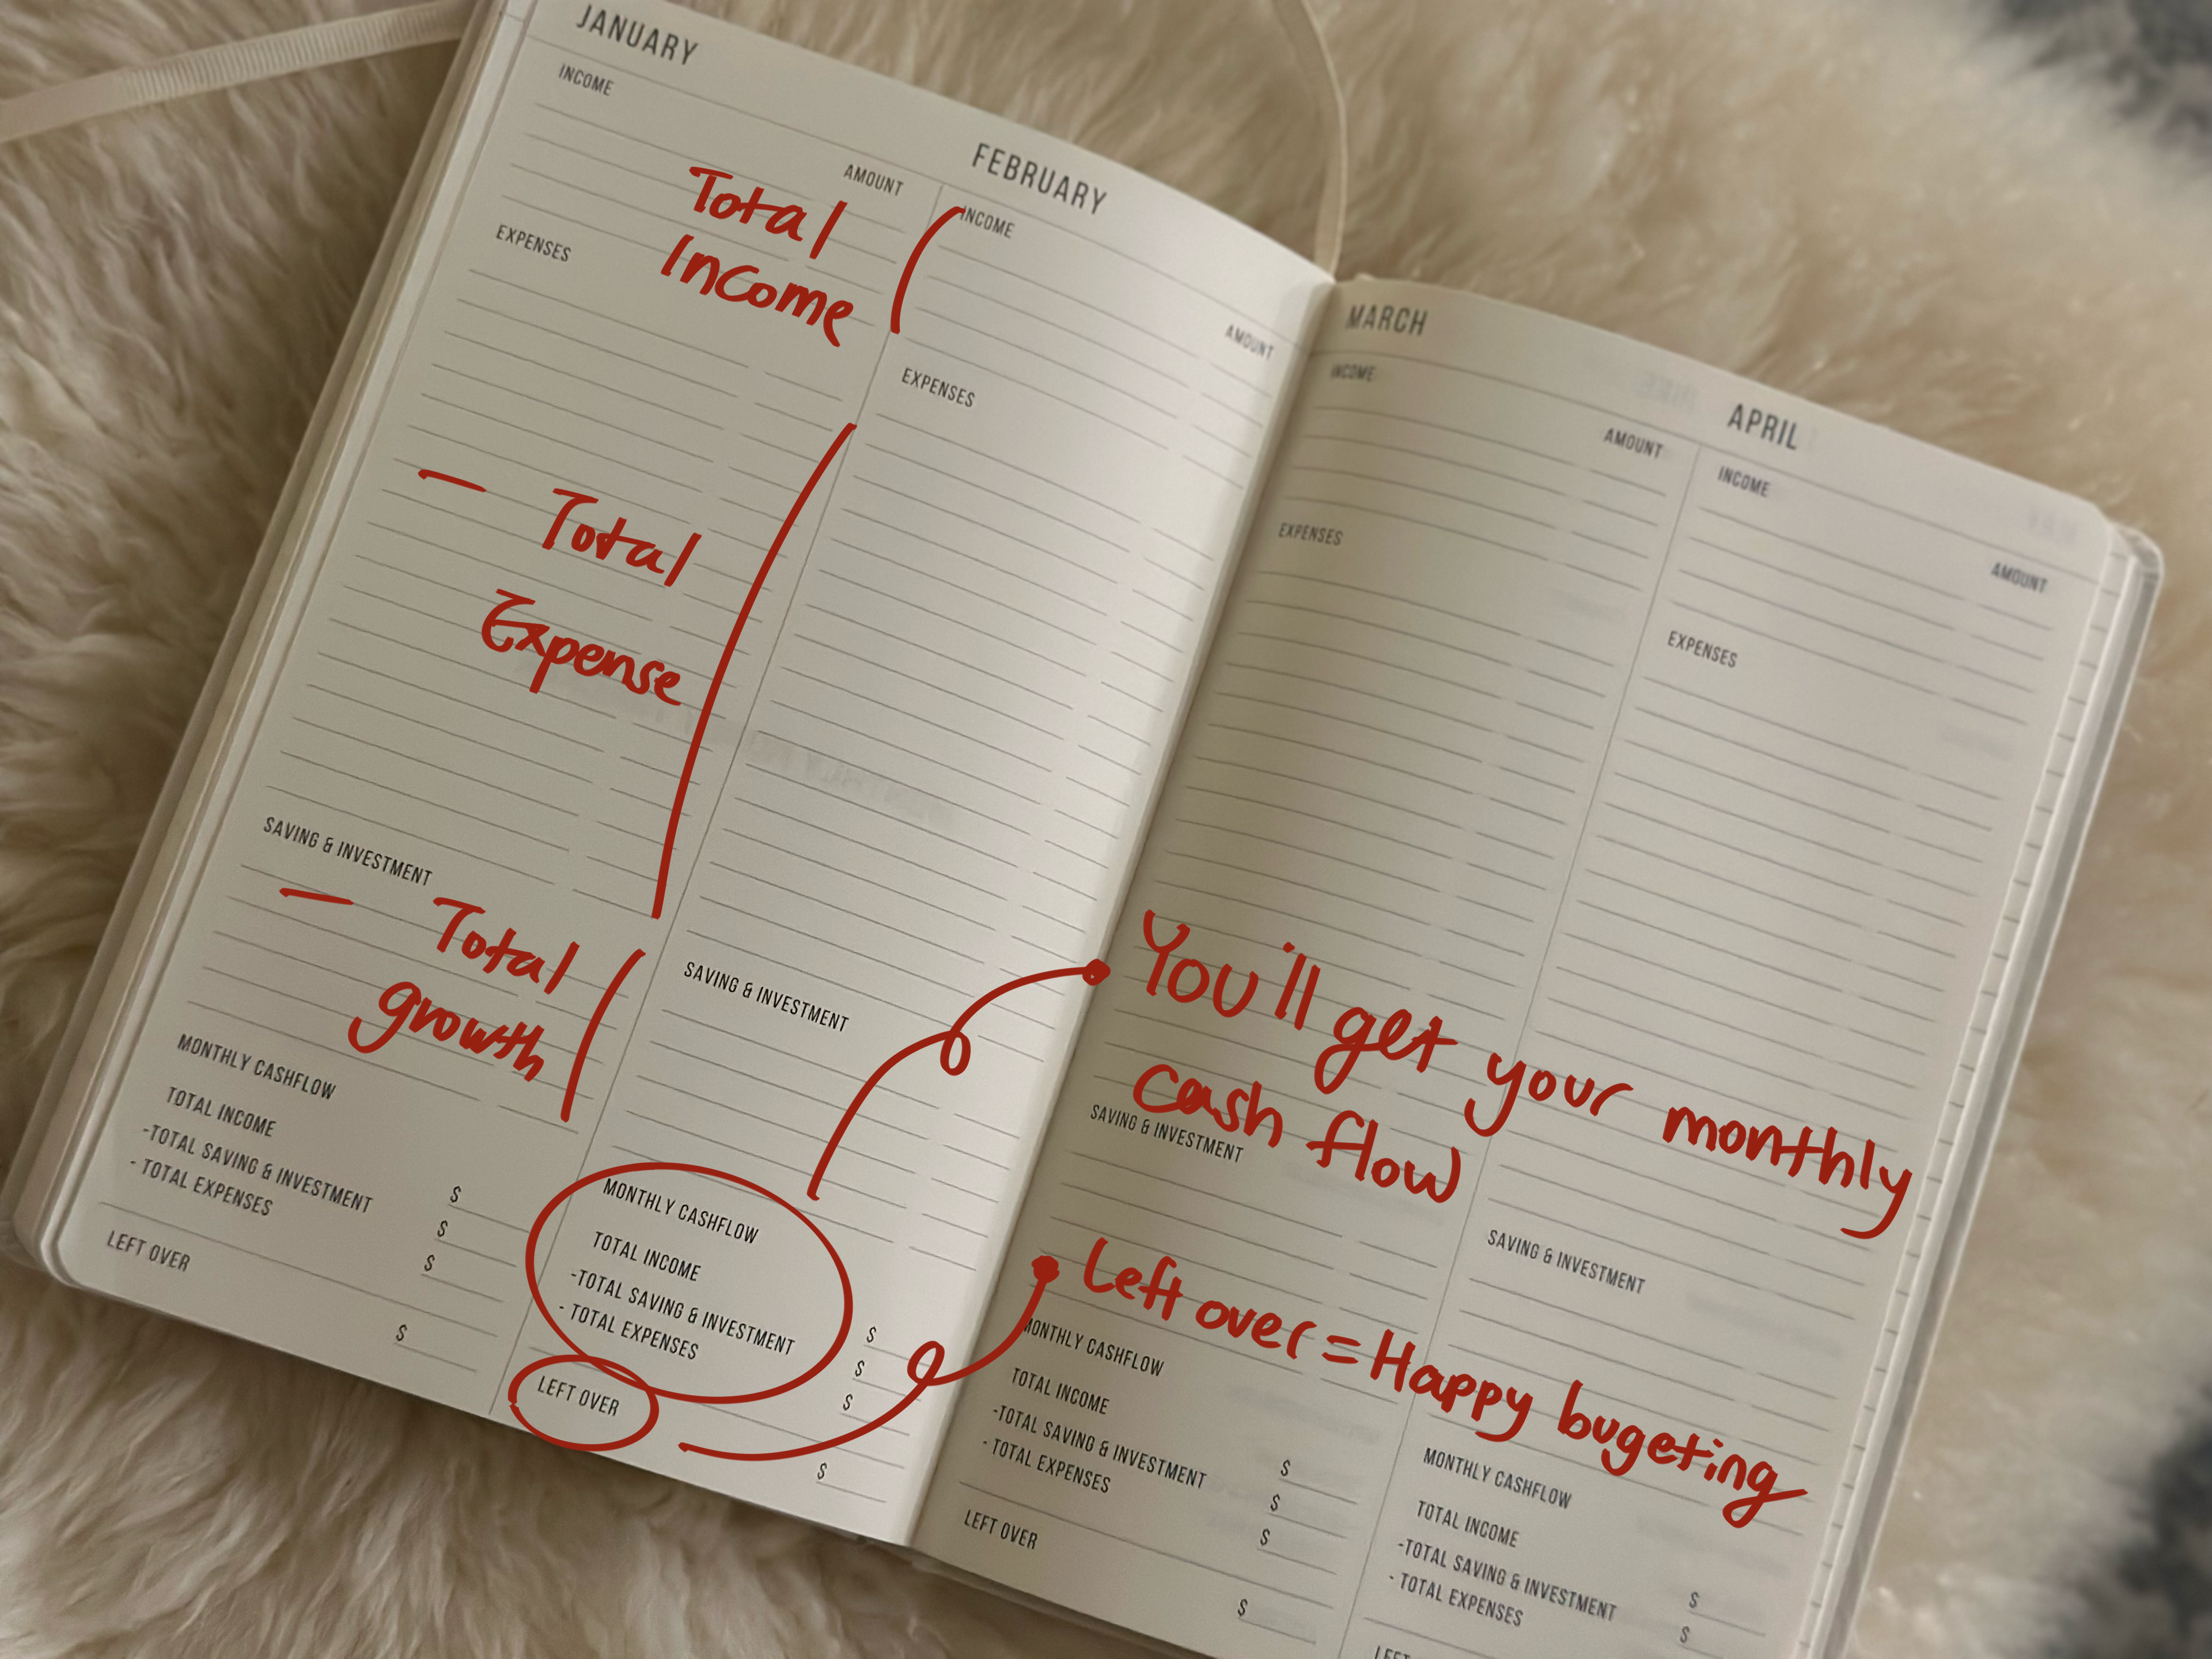 JANUARY
INCOME
AMOUNT
Total
Income
EXPENSES
— Total
Expense
SAVING & INVESTMENT
— Total
growth
MONTHLY CASHFLOW
TOTAL INCOME
$
-TOTAL SAVING & INVESTMENT
$
- TOTAL EXPENSES
$
LEFT OVER
$
FEBRUARY
INCOME
AMOUNT
EXPENSES
SAVING & INVESTMENT
MONTHLY CASHFLOW
TOTAL INCOME
$
-TOTAL SAVING & INVESTMENT
$
- TOTAL EXPENSES
$
LEFT OVER
$
MARCH
INCOME
AMOUNT
EXPENSES
You'll get your monthly
cash flow
SAVING & INVESTMENT
Left over = Happy bugeting
MONTHLY CASHFLOW
TOTAL INCOME
$
-TOTAL SAVING & INVESTMENT
$
- TOTAL EXPENSES
$
LEFT OVER
$
APRIL
INCOME
AMOUNT
EXPENSES
SAVING & INVESTMENT
MONTHLY CASHFLOW
TOTAL INCOME
$
-TOTAL SAVING & INVESTMENT
$
- TOTAL EXPENSES